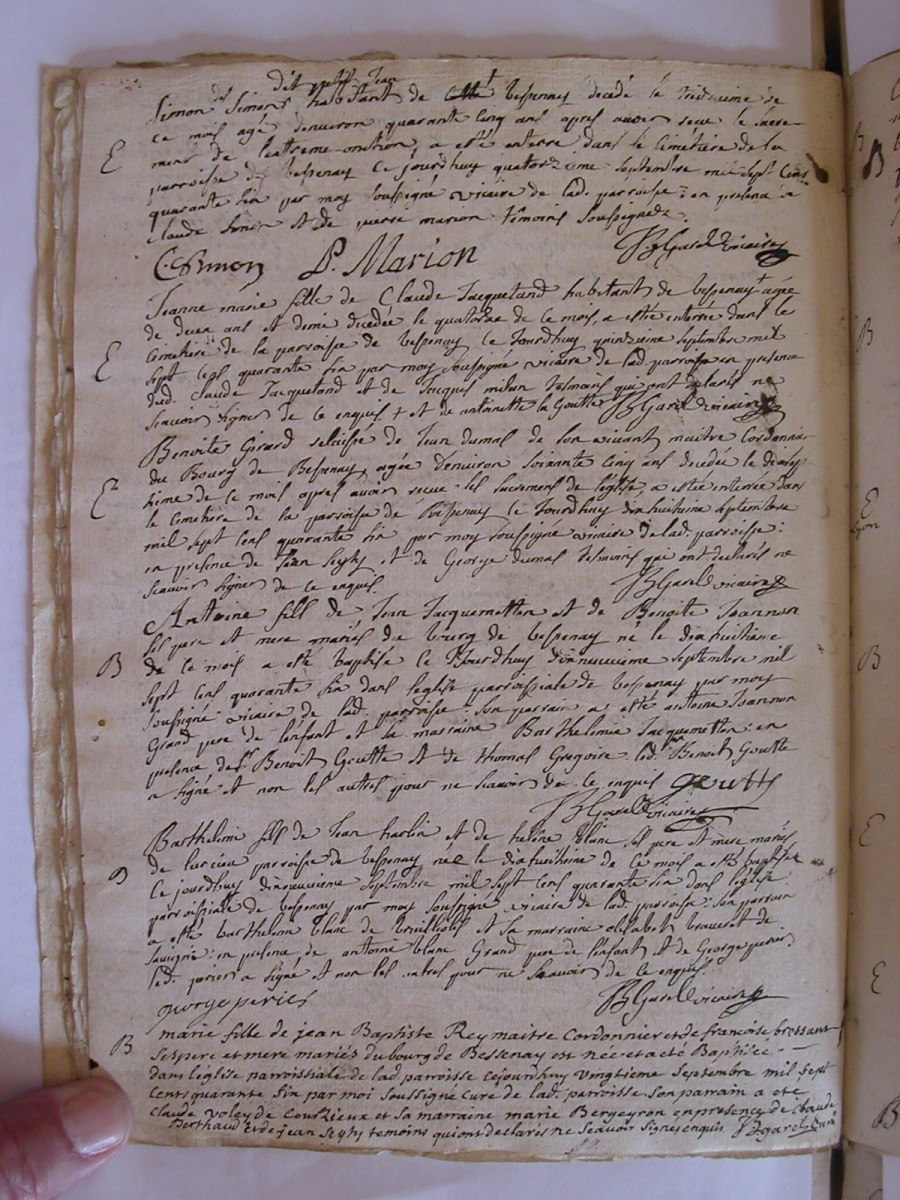 dit petit Jean
Simon Simon habitant de Bessenay decédé le treizieme de
ce mois agé denviron quarante cinq ans apres avoir receu le sacre-
E
ment de lextreme onction, a esté enterré dans le Cimetiere de la
parroisse de Bessenay ce jourdhuy quatorzieme septembre mil sept cens
quarante six par moy soussigné vicaire de lad. parroisse en presence de
Claude Simon et de pierre marion temoins soussignés.
C. Simon P. Marion JB Garel vicaire
Jeanne marie fille de Claude Jacquetand habitant de Bessenay agée
de deux ans et demi decedée le quatorze de ce mois, a estée enterrée dans le
Cimetiere de la parroisse de Bessenay ce Jourdhuy quinzieme septembre mil
E
sept cens quarante six par moy soussigné vicaire de lad. parroisse en presence
dud. Claude Jacquetand et de Jacques temoins qui ont declarés ne
scavoir signer de ce enquis + et de antoinette la Goutte JB Garel vicaire
Benoite Girard de Jean dumas de son vivant maitre Cordonnier
du Bourg de Bessenay, agée denviron soixante cinq ans decedée le
E
de ce mois apres avoir receue les sacremens de leglise, a estée enterrée dans
le Cimetiere de la parroisse de Bessenay ce Jourdhuy dixhuitieme septembre
mil sept cens quarante six par moy soussigné vicaire de lad. parroisse:
en presence de Jean Seyty et de George dumas temoins qui ont declarés ne
scavoir signer de ce enquis. JB Garel vicaire
Antoine fils de Jean Jacquemetton et de Benoite Joannon
ses pere et mere mariés du bourg de Bessenay né le dixhuitieme
B
de ce mois a esté baptisé ce Jourdhuy dixneuvieme septembre mil
sept cens quarante six dans leglise parroissiale de Bessenay par moy
soussigné vicaire de lad. parroisse: son parrain a esté antoine Joannon
Grand pere de lenfant et la marraine Barthelemie Jacquemetton: en
presence de Sr. Benoit Goutte et de thomas Gregoire led. Sr Benoit Goutte
a signé et non les autres pour ne scavoir de ce enquis Goutte
JB Garel vicaire
Barthelemi fils de Jean et de helene blanc ses pere et mere mariés
de parroisse de Bessenay né le dixhuitieme de ce mois a esté baptisé
B
ce jourdhuy dixneuvieme septembre mil sept cens quarante six dans leglise
parroissiale de Bessenay par moy soussigné vicaire de lad. parroisse: son parrain
a esté barthelemi blanc de et sa marraine elisabet de
savigné: en presence de antoine blanc Grand pere de lenfant et de George perier
led. perier a signé et non les autres pour ne scavoir de ce enquis.
george perier JB Garel vicaire
marie fille de jean Baptiste Rey maitre Cordonnier et de francoise bressant
B
ses pere et mere mariés du bourg de Bessenay est née et a eté Baptisée
dans leglise parroissiale de lad. parroisse cejourdhuy vingtieme septembre mil sept
cents quarante six par moi soussigné curé de lad. parroisse son parrain a eté
claude voley de Courzieux et sa marraine marie Bergeyron en presence de Claude
Berthaud et de jean Seyty temoins qui ont declarés ne scavoir signer enquis JB garel Curé